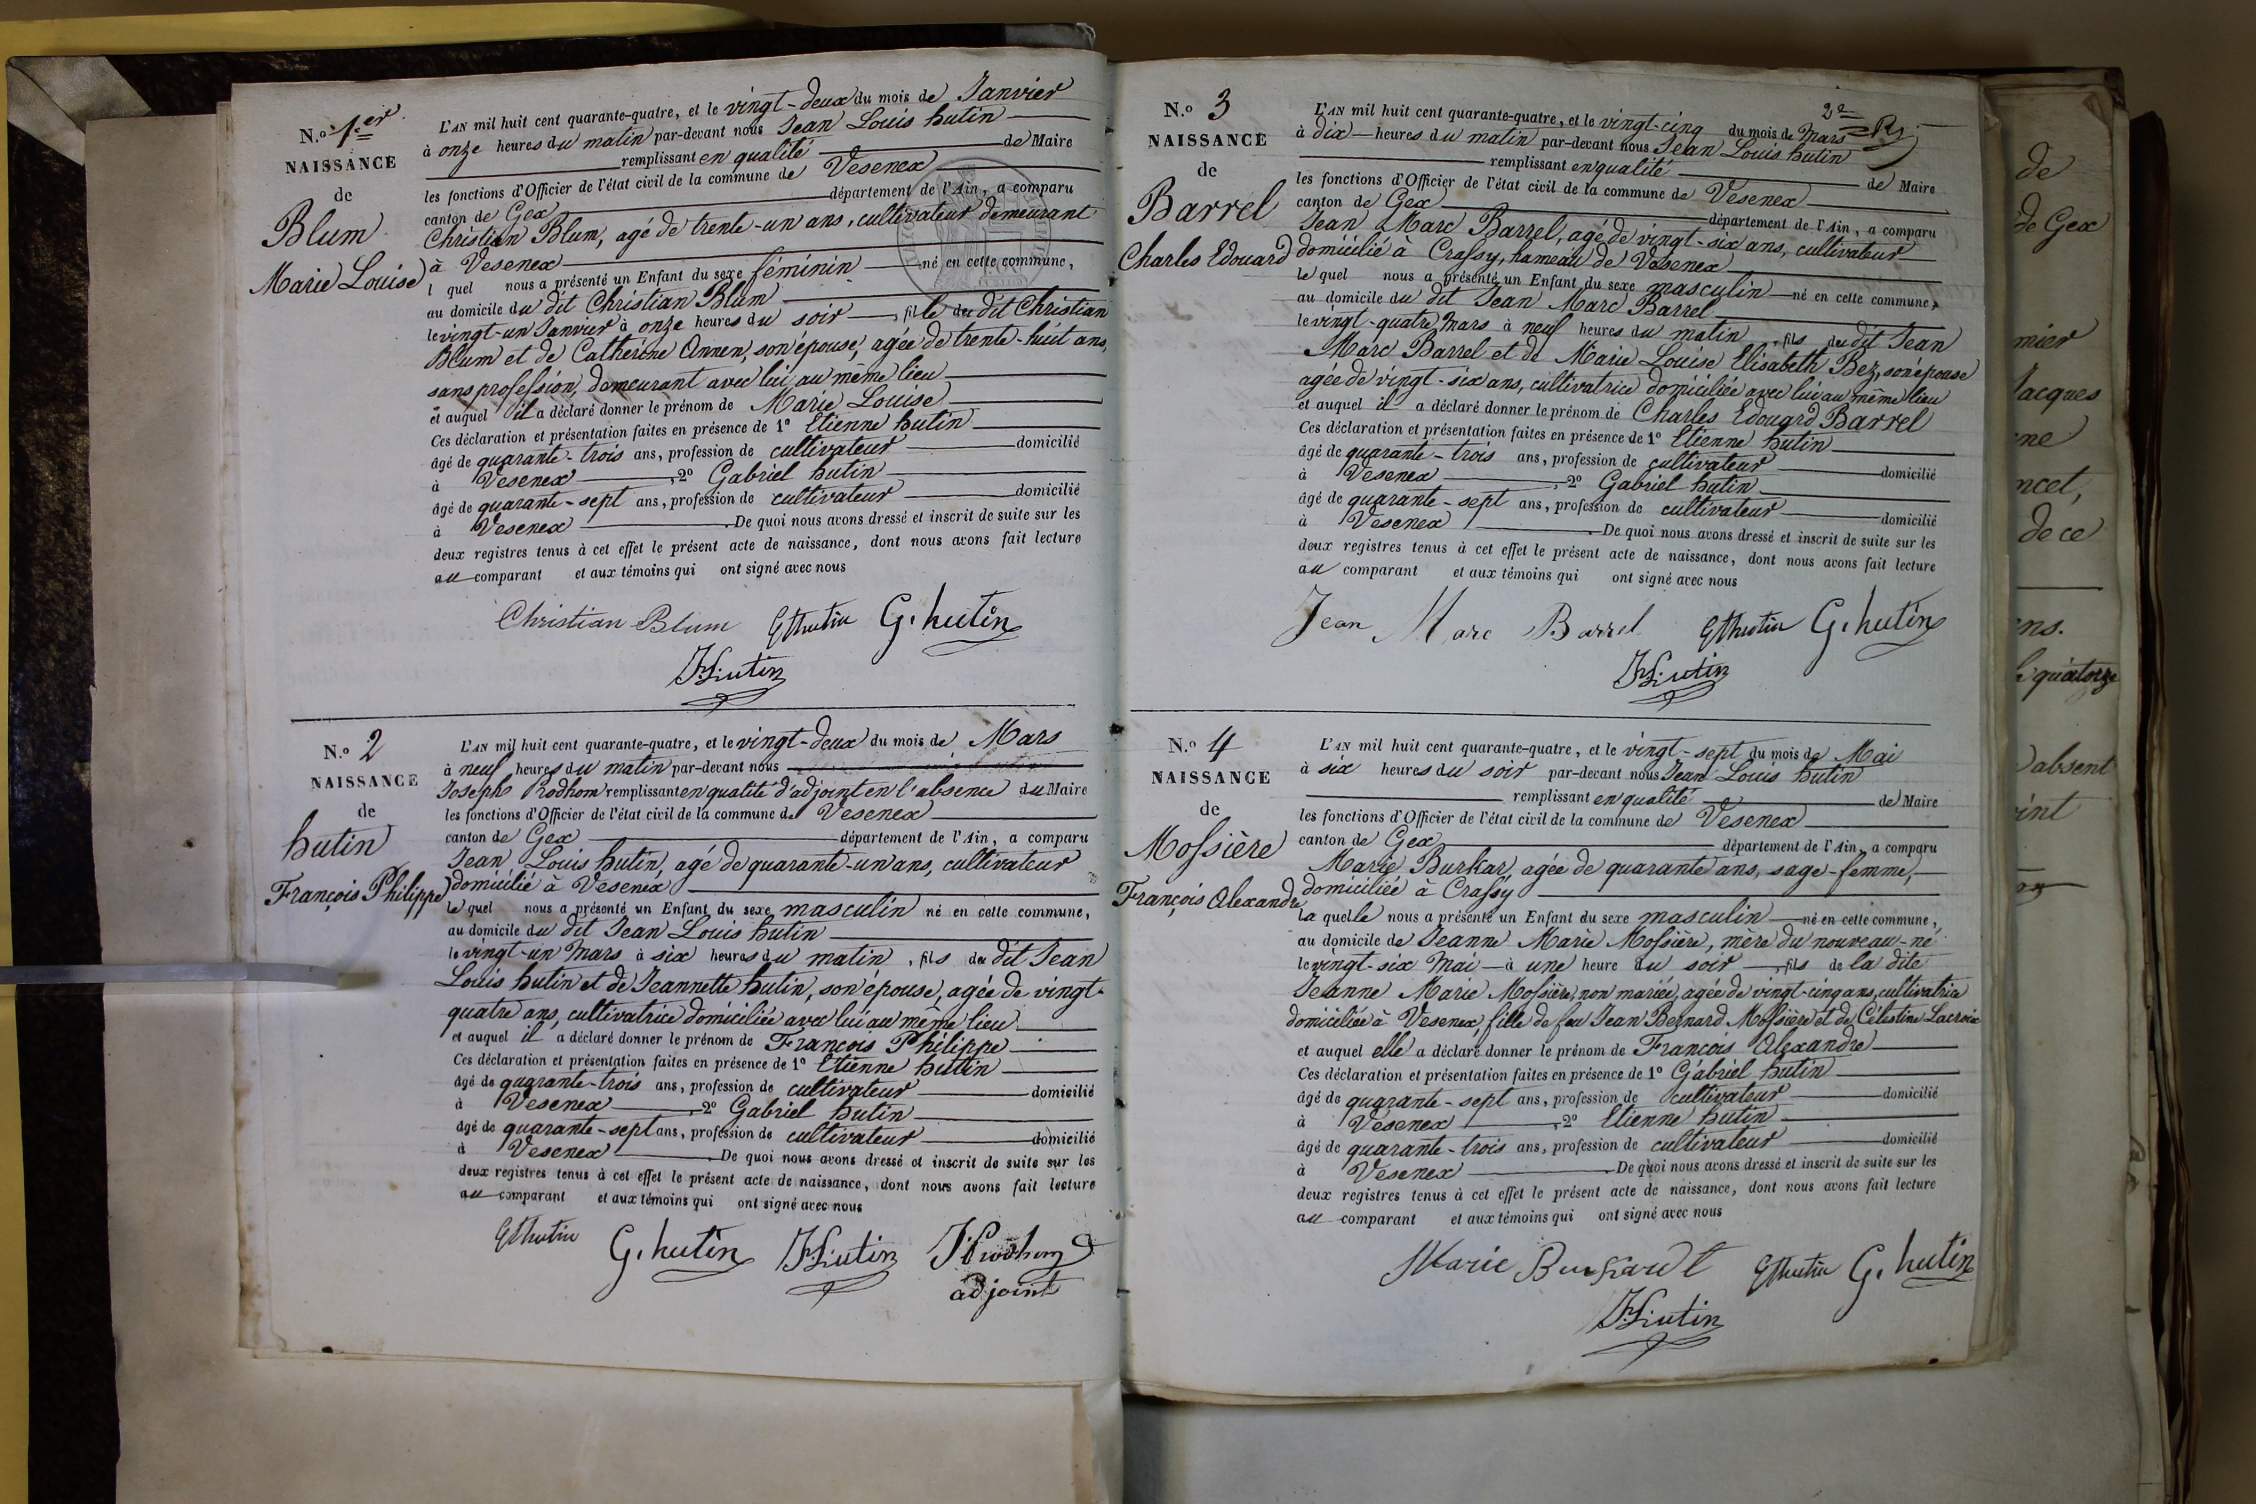 N.o 1.er
NAISSANCE
de
Blum
Marie Louise
L'AN mil huit cent quarante-quatre, et le vingt-deux du mois de Janvier
à onze heures du matin par-devant nous Jean Louis hutin
remplissant en qualité de Maire
les fonctions d'Officier de l'état civil de la commune de Vesenex
canton de Gex département de l'Ain, a comparu
Christian Blum, agé de trente-un ans, cultivateur demeurant
à Vesenex
l quel nous a présenté un Enfant du sexe féminin né en cette commune,
au domicile du dit Christian Blum
le vingt-un Janvier à onze heures du soir, fille du dit Christian
Blum et de Cathérine Annen, son épouse, agée de trente-huit ans,
sans profession, demeurant avec lui au même lieu
et auquel il a déclaré donner le prénom de Marie Louise
Ces déclaration et présentation faites en présence de 1o Etienne hutin
âgé de quarante-trois ans, profession de cultivateur domicilié
à Vesenex, 2o Gabriel hutin
âgé de quarante-sept ans, profession de cultivateur domicilié
à Vesenex. De quoi nous avons dressé et inscrit de suite sur les
deux registres tenus à cet effet le présent acte de naissance, dont nous avons fait lecture
au comparant et aux témoins qui ont signé avec nous
Christian Blum Ethutin G. hutin
JLhutin
N.o 2
NAISSANCE
de
hutin
François Philippe
L'AN mil huit cent quarante-quatre, et le vingt-deux du mois de Mars
à neuf heures du matin par-devant nous
Joseph Prodhom remplissant en qualité d'adjoint en l'absence du Maire
les fonctions d'Officier de l'état civil de la commune de Vesenex
canton de Gex département de l'Ain, a comparu
Jean Louis hutin, agé de quarante-un ans, cultivateur
domicilié à Vesenex
le quel nous a présenté un Enfant du sexe masculin né en cette commune,
au domicile du dit Jean Louis hutin
le vingt-un Mars à six heures du matin, fils du dit Jean
Louis hutin et de Jeannette hutin, son épouse, agée de vingt-
quatre ans, cultivatrice domiciliée avec lui au même lieu
et auquel il a déclaré donner le prénom de François Philippe
Ces déclaration et présentation faites en présence de 1o Etienne hutin
âgé de quarante-trois ans, profession de cultivateur domicilié
à Vesenex, 2o Gabriel hutin
âgé de quarante-sept ans, profession de cultivateur domicilié
à Vesenex. De quoi nous avons dressé et inscrit de suite sur les
deux registres tenus à cet effet le présent acte de naissance, dont nous avons fait lecture
au comparant et aux témoins qui ont signé avec nous
Ethutin G. hutin JLhutin JProdhom
adjoint
2e
N.o 3
NAISSANCE
de
Barrel
Charles Edouard
L'AN mil huit cent quarante-quatre, et le vingt-cinq du mois de Mars
à dix heures du matin par-devant nous Jean Louis hutin
remplissant en qualité de Maire
les fonctions d'Officier de l'état civil de la commune de Vesenex
canton de Gex département de l'Ain, a comparu
Jean Marc Barrel, agé de vingt-six ans, cultivateur
domicilié à Crassy, hameau de Vesenex
le quel nous a présenté un Enfant du sexe masculin né en cette commune,
au domicile du dit Jean Marc Barrel
le vingt-quatre Mars à neuf heures du matin, fils du dit Jean
Marc Barrel et de Marie Louise Elisabeth Bez, son épouse
agée de vingt-six ans, cultivatrice domiciliée avec lui au même lieu
et auquel il a déclaré donner le prénom de Charles Edouard Barrel
Ces déclaration et présentation faites en présence de 1o Etienne hutin
âgé de quarante-trois ans, profession de cultivateur domicilié
à Vesenex, 2o Gabriel hutin
âgé de quarante-sept ans, profession de cultivateur domicilié
à Vesenex. De quoi nous avons dressé et inscrit de suite sur les
deux registres tenus à cet effet le présent acte de naissance, dont nous avons fait lecture
au comparant et aux témoins qui ont signé avec nous
Jean Marc Barrel Ethutin G. hutin
JLhutin
N.o 4
NAISSANCE
de
Mossière
François Alexandre
L'AN mil huit cent quarante-quatre, et le vingt-sept du mois de Mai
à six heures du soir par-devant nous Jean Louis hutin
remplissant en qualité de Maire
les fonctions d'Officier de l'état civil de la commune de Vesenex
canton de Gex département de l'Ain, a comparu
Marie Burkar, agée de quarante ans, sage-femme,
domiciliée à Crassy
la quelle nous a présenté un Enfant du sexe masculin né en cette commune,
au domicile de Jeanne Marie Mossière, mère du nouveau-né
le vingt-six Mai à une heure du soir, fils de la dite
Jeanne Marie Mossière, non mariée, agée de vingt-cinq ans, cultivatrice
domiciliée à Vesenex, fille de feu Jean Bernard Mossière et de Célestine Lacroix
et auquel elle a déclaré donner le prénom de François Alexandre
Ces déclaration et présentation faites en présence de 1o Gabriel hutin
âgé de quarante-sept ans, profession de cultivateur domicilié
à Vesenex, 2o Etienne hutin
âgé de quarante-trois ans, profession de cultivateur domicilié
à Vesenex. De quoi nous avons dressé et inscrit de suite sur les
deux registres tenus à cet effet le présent acte de naissance, dont nous avons fait lecture
au comparant et aux témoins qui ont signé avec nous
Marie Burkardt Ethutin G. hutin
JLhutin
de
de Gex
mier
Jacques
ne
ncet,
de ce
ens.
quatorze
absent
oint